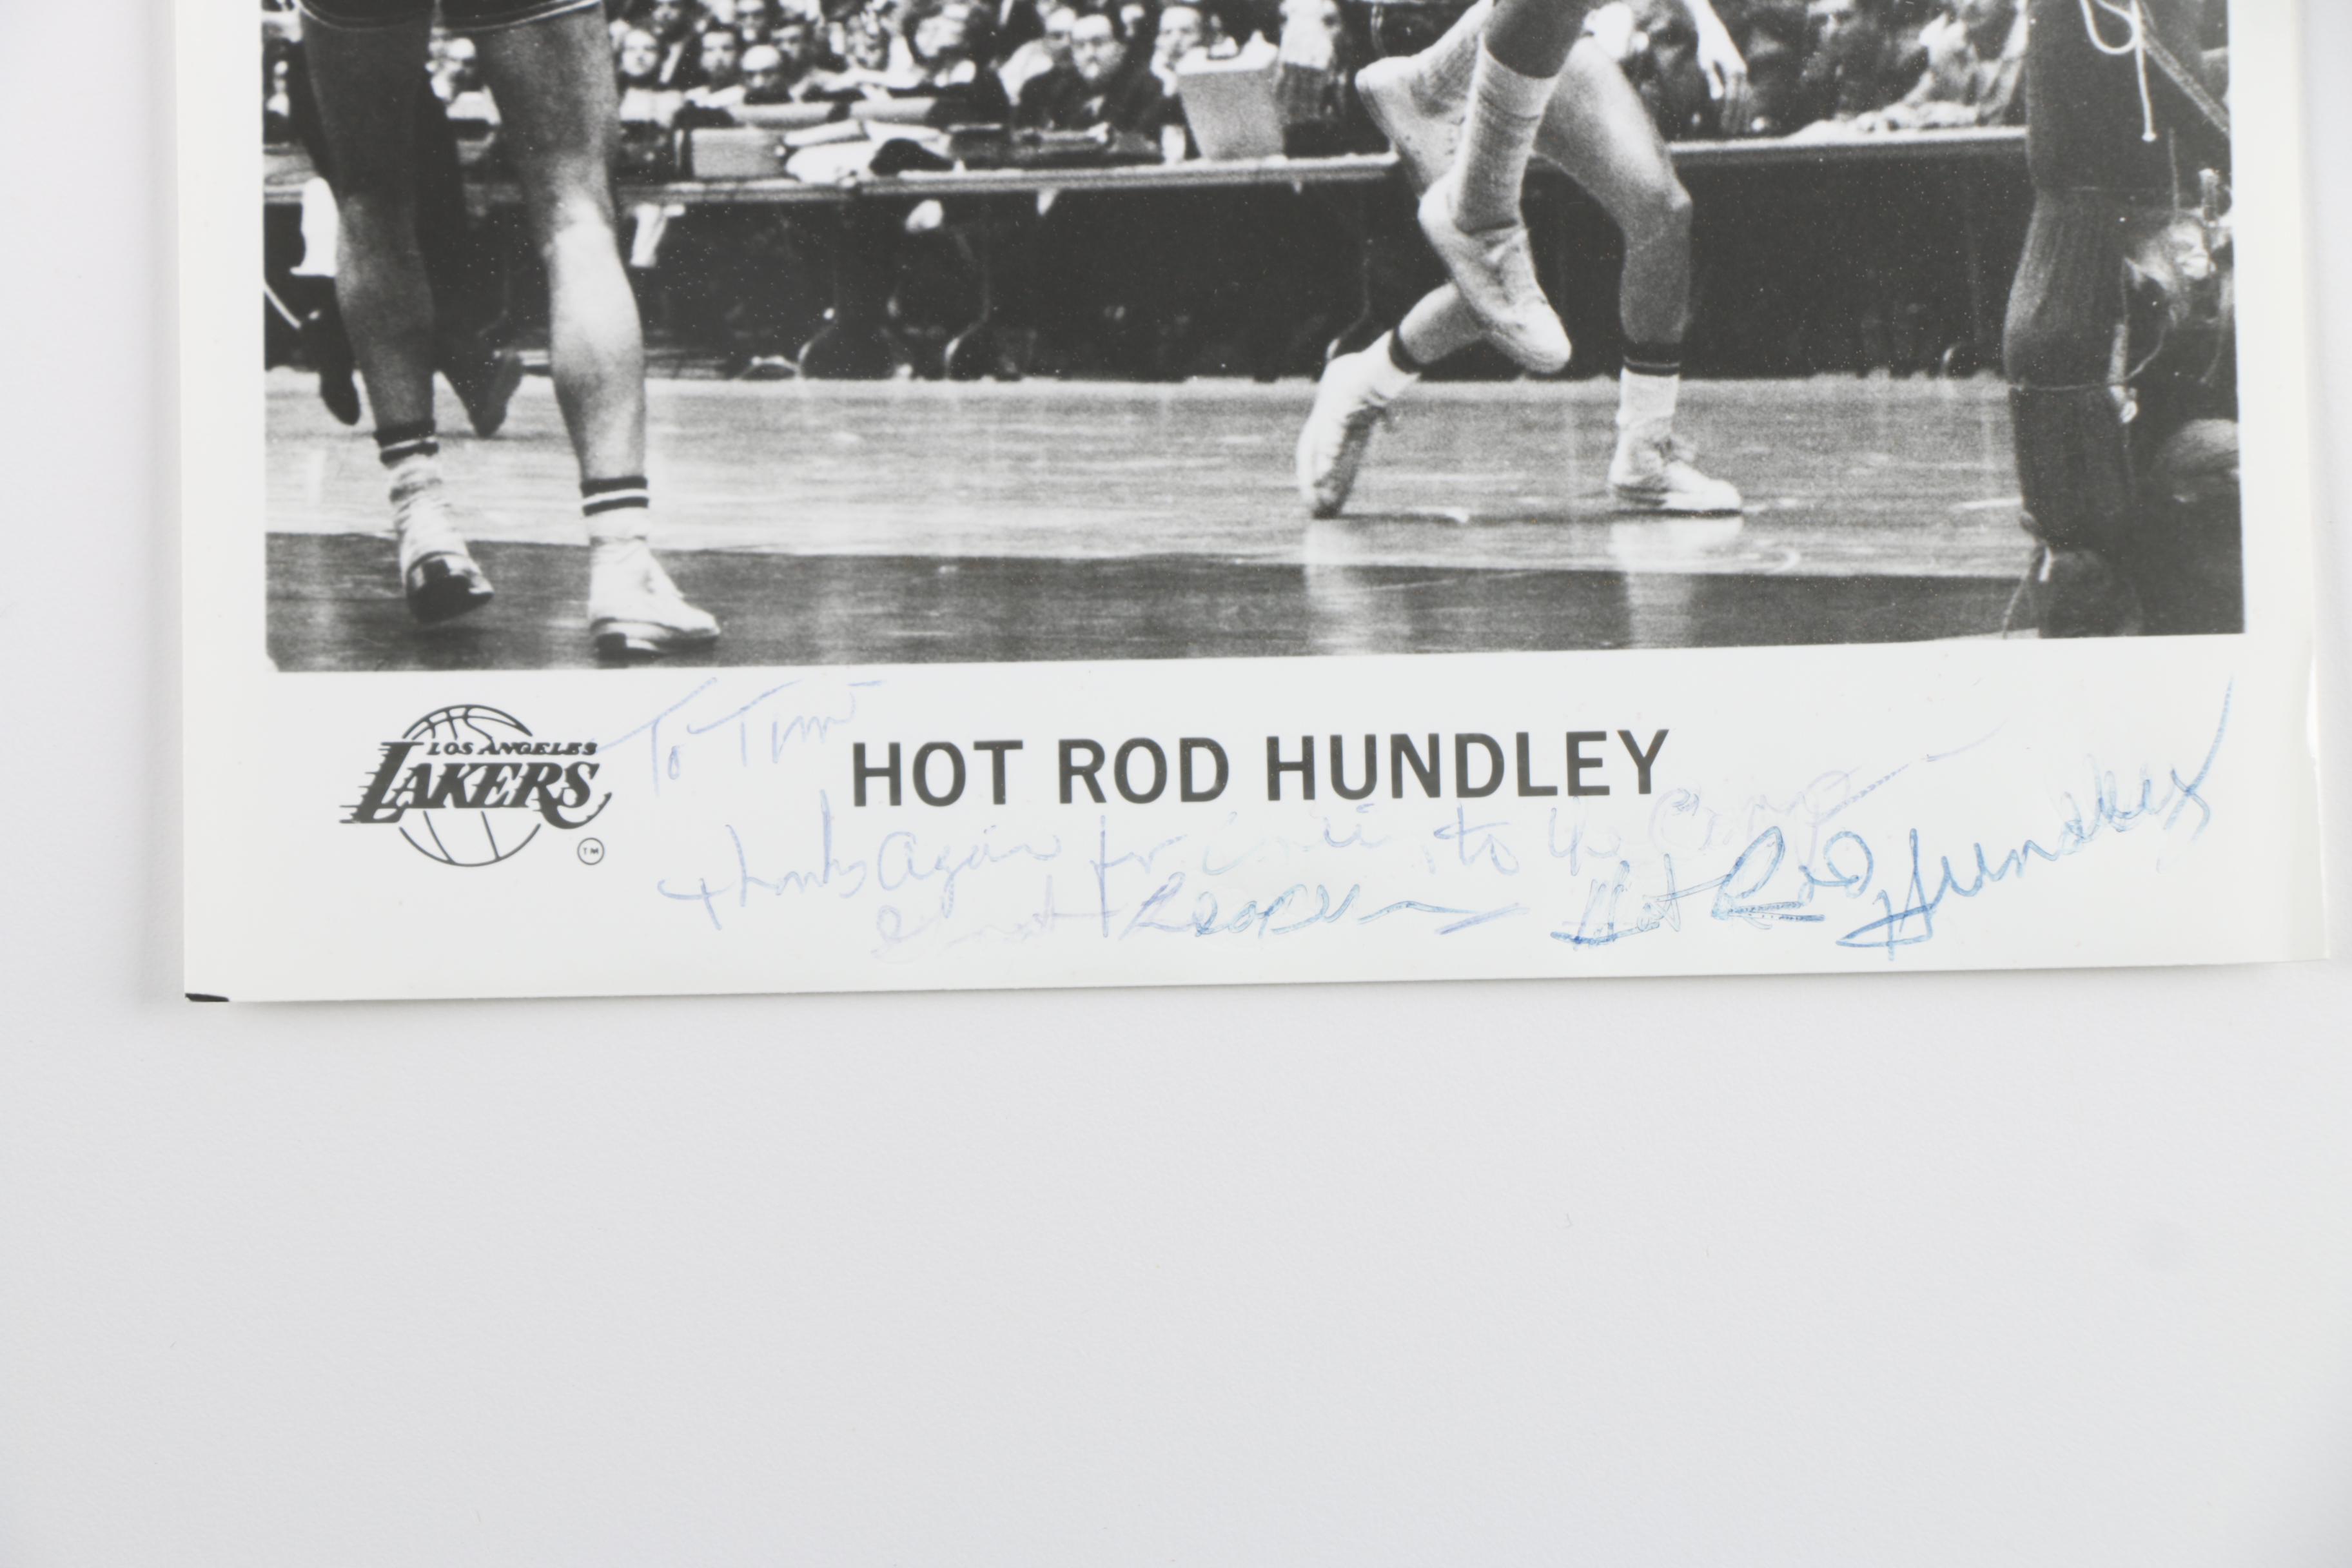 LOS ANGELES
LAKERS
TM
To Tim
HOT ROD HUNDLEY
thanks Again for to the
Hot Rod Hundley